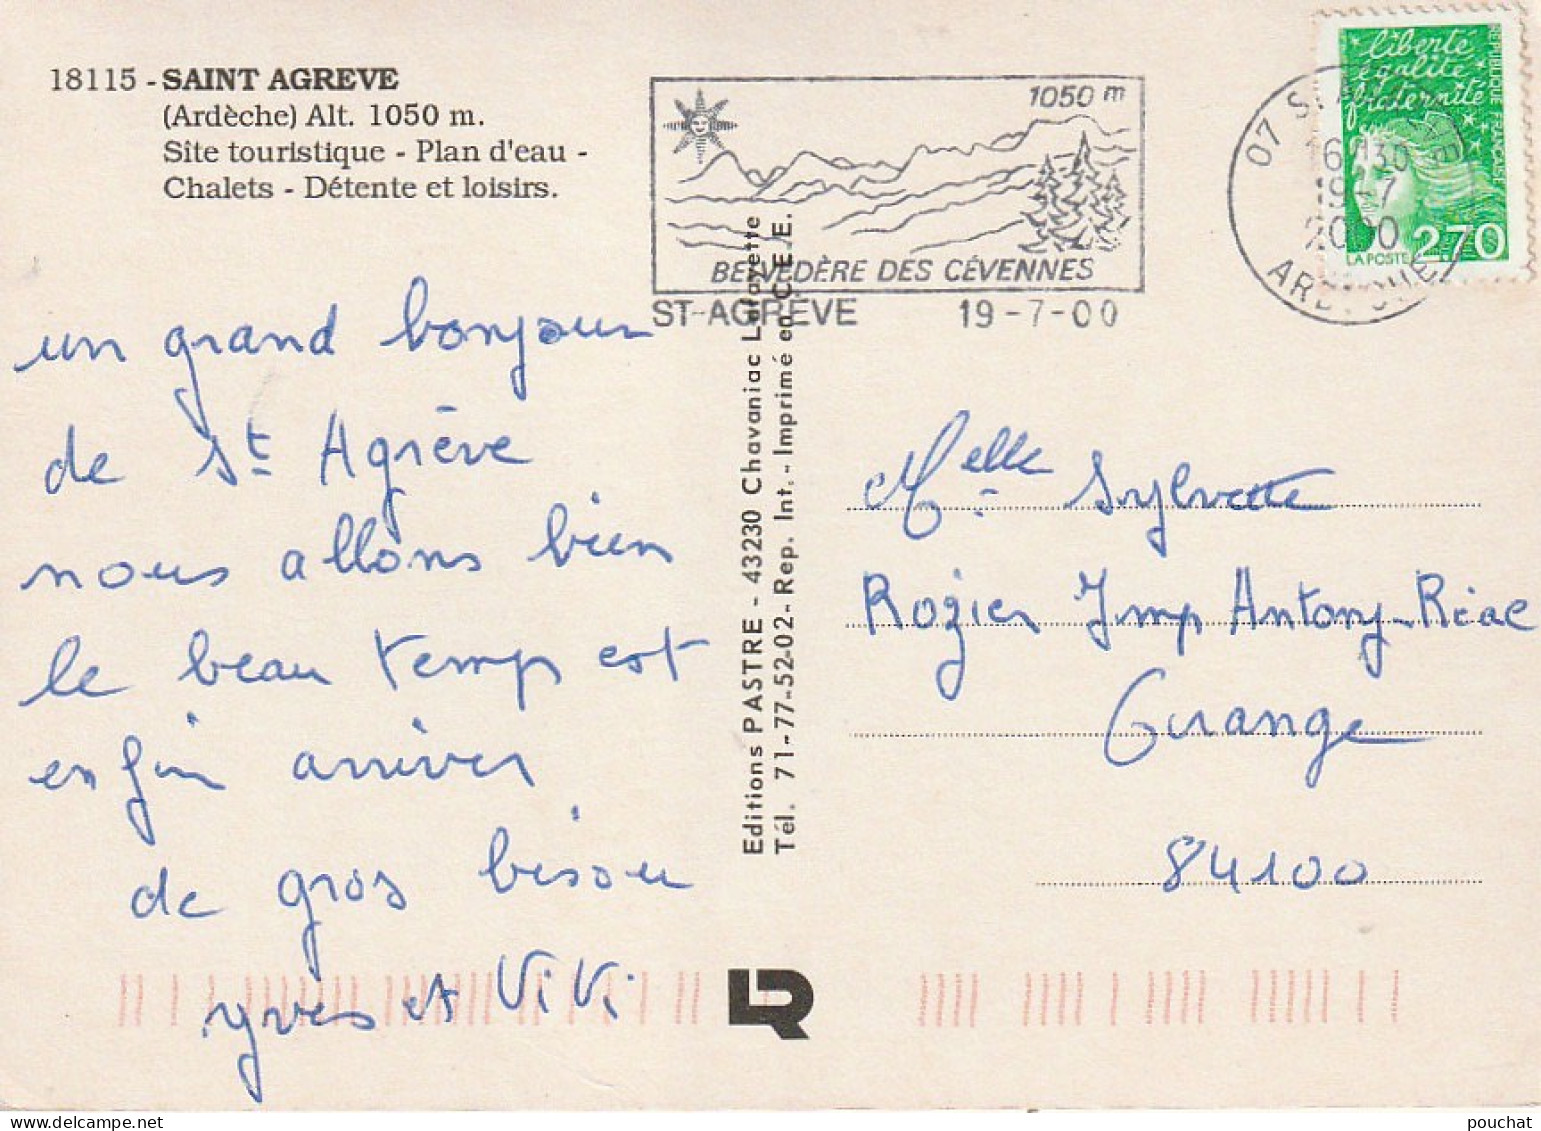 18115 - SAINT AGREVE
(Ardèche) Alt. 1050 m.
Sîte touristique - Plan d'eau -
Chalets - Détente et loisirs.
1050 m
BELVEDÈRE DES CÉVENNES
ST-AGRÈVE 19-7-00
07 ST AGREVE
16H30
19-7
2000
ARDECHE
liberté
égalité
fraternité
REPUBLIQUE FRANÇAISE
LA POSTE 2,70
un grand bonjour
de St Agrève
nous allons bien
le beau temp est
enfin arriver
de gros bisou
yves et ViVi
Editions PASTRE - 43230 Chavaniac Lafayette
Tél. 71-77-52-02 - Rep. Int. - Imprimé en C.E.E.
Melle Sylvette
Rozier Imp Antony-Réal
Orange
84100
LR
pouchat